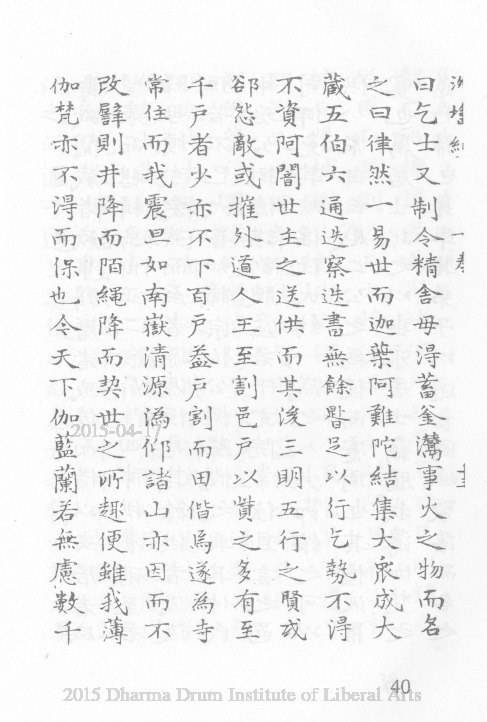 曰乞士又制令精舍毋淂蓄釜灊事火之物而名
之曰律然 易世而迦葉阿難陀結集大眾成大
藏五伯六通迭察迭書無餘晷足以行乞勢不淂
不資阿闍世主之送供而其後三明五行之賢或
郤怨敵或摧外道 王至割邑戶以賞之多有至
千戶者少亦不下百戶益戶割而田偕焉遂為寺
常住而我震旦如南嶽清源溈仰諸山亦因而不
改譬則井降而陌繩降而契世之所趣便雖我薄
伽梵亦不淂而保也令天下伽藍蘭若無慮數千
2015-04-17
40
2015 Dharma Drum Institute of Liberal Arts